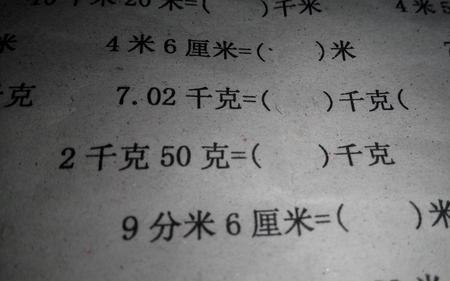 米=( )千米 4米
米 4米6厘米=( )米
千克 7.02千克=( )千克(
2千克50克=( )千克
9分米6厘米=( )米